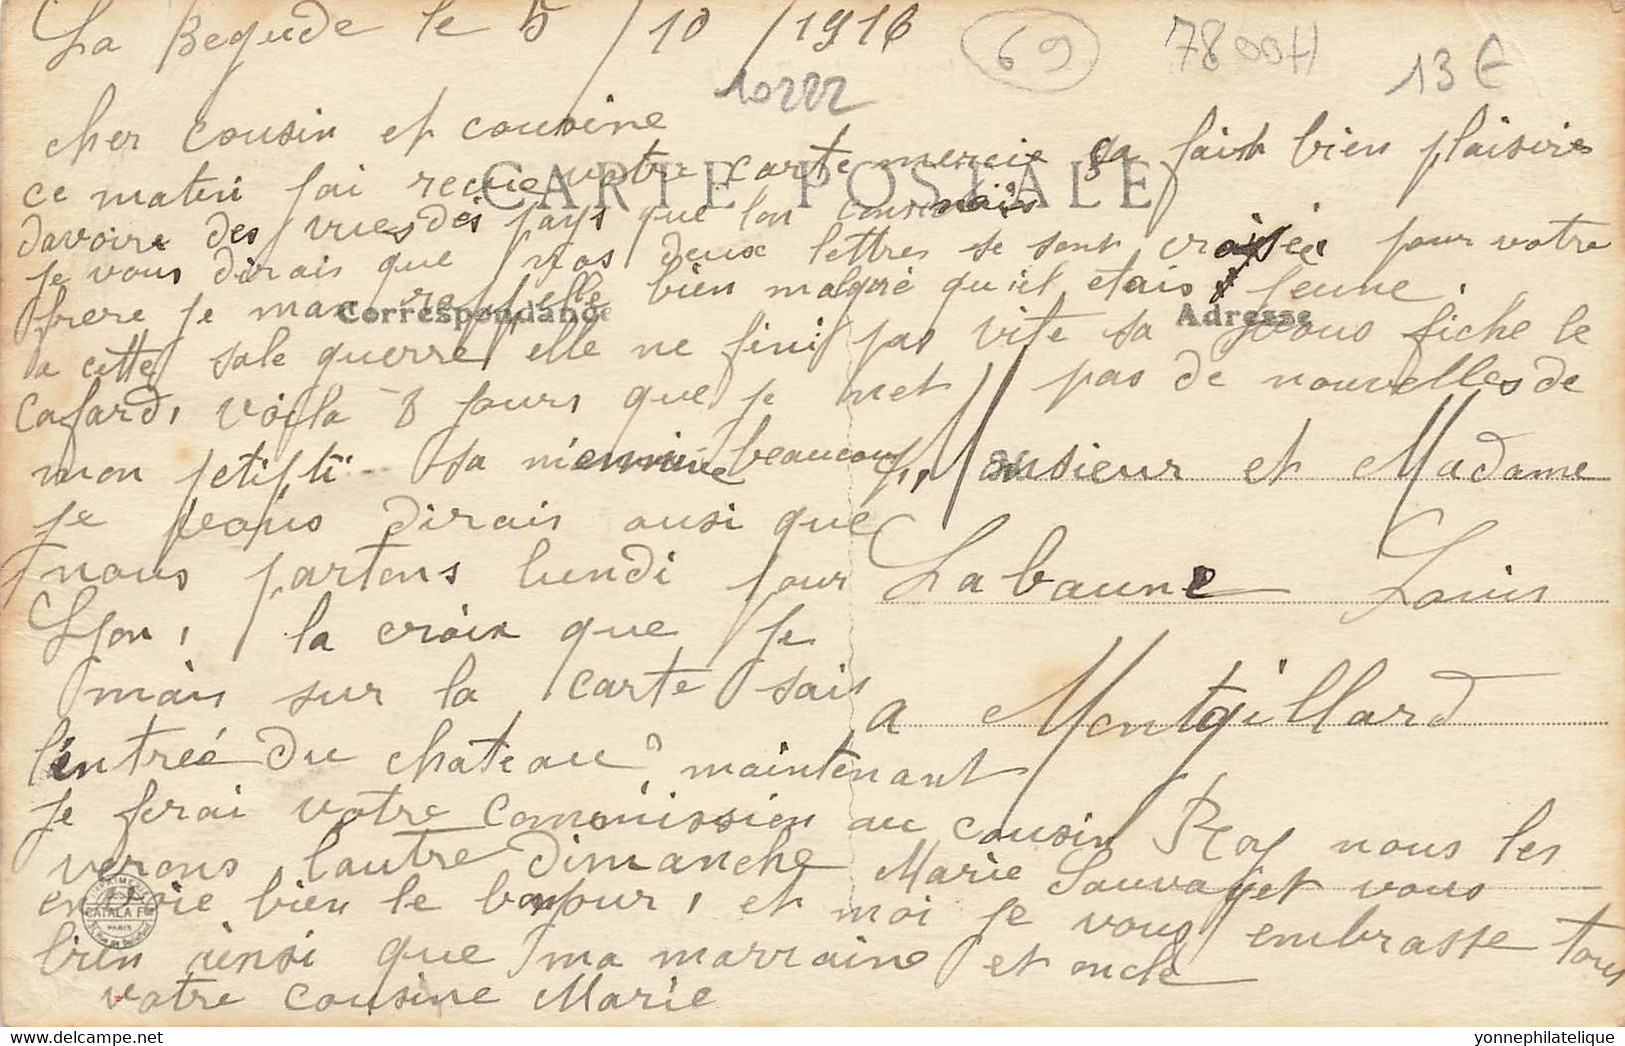 La Begude le 5/10/1916
69
7800H
13€
10222
cher cousin et cousine
CARTE POSTALE
ce matin jai recue votre carte mercie sa fait bien plaisire
davoire des vues des pays que lon connais
je vous dirais que nos deux lettres se sont croisée pour votre
frere je man rappelle bien malgré qu'il etais jeune.
Correspondance
Adresse
a cette sale guerre elle ne finit pas vite sa vous fiche le
cafard, voila 8 jours que je net pas de nouvelles de
mon petit ... sa m'ennuie beaucoup,
je peous dirais ausi que
nous partons lundi pour
Lyon, la croix que je
mais sur la carte sais
l'entreé du chateau, maintenant
Monsieur et Madame
Labaune Louis
a Montgillard
je ferai votre commission au cousin Roy nous les
verons lautre dimanche Marie Sauvajet vous
envoie bien le bonjour, et moi je vous embrasse tous
bien ainsi que ma marraine et oncle
votre cousine Marie
CATALA F
PARIS
yonnephilatelique